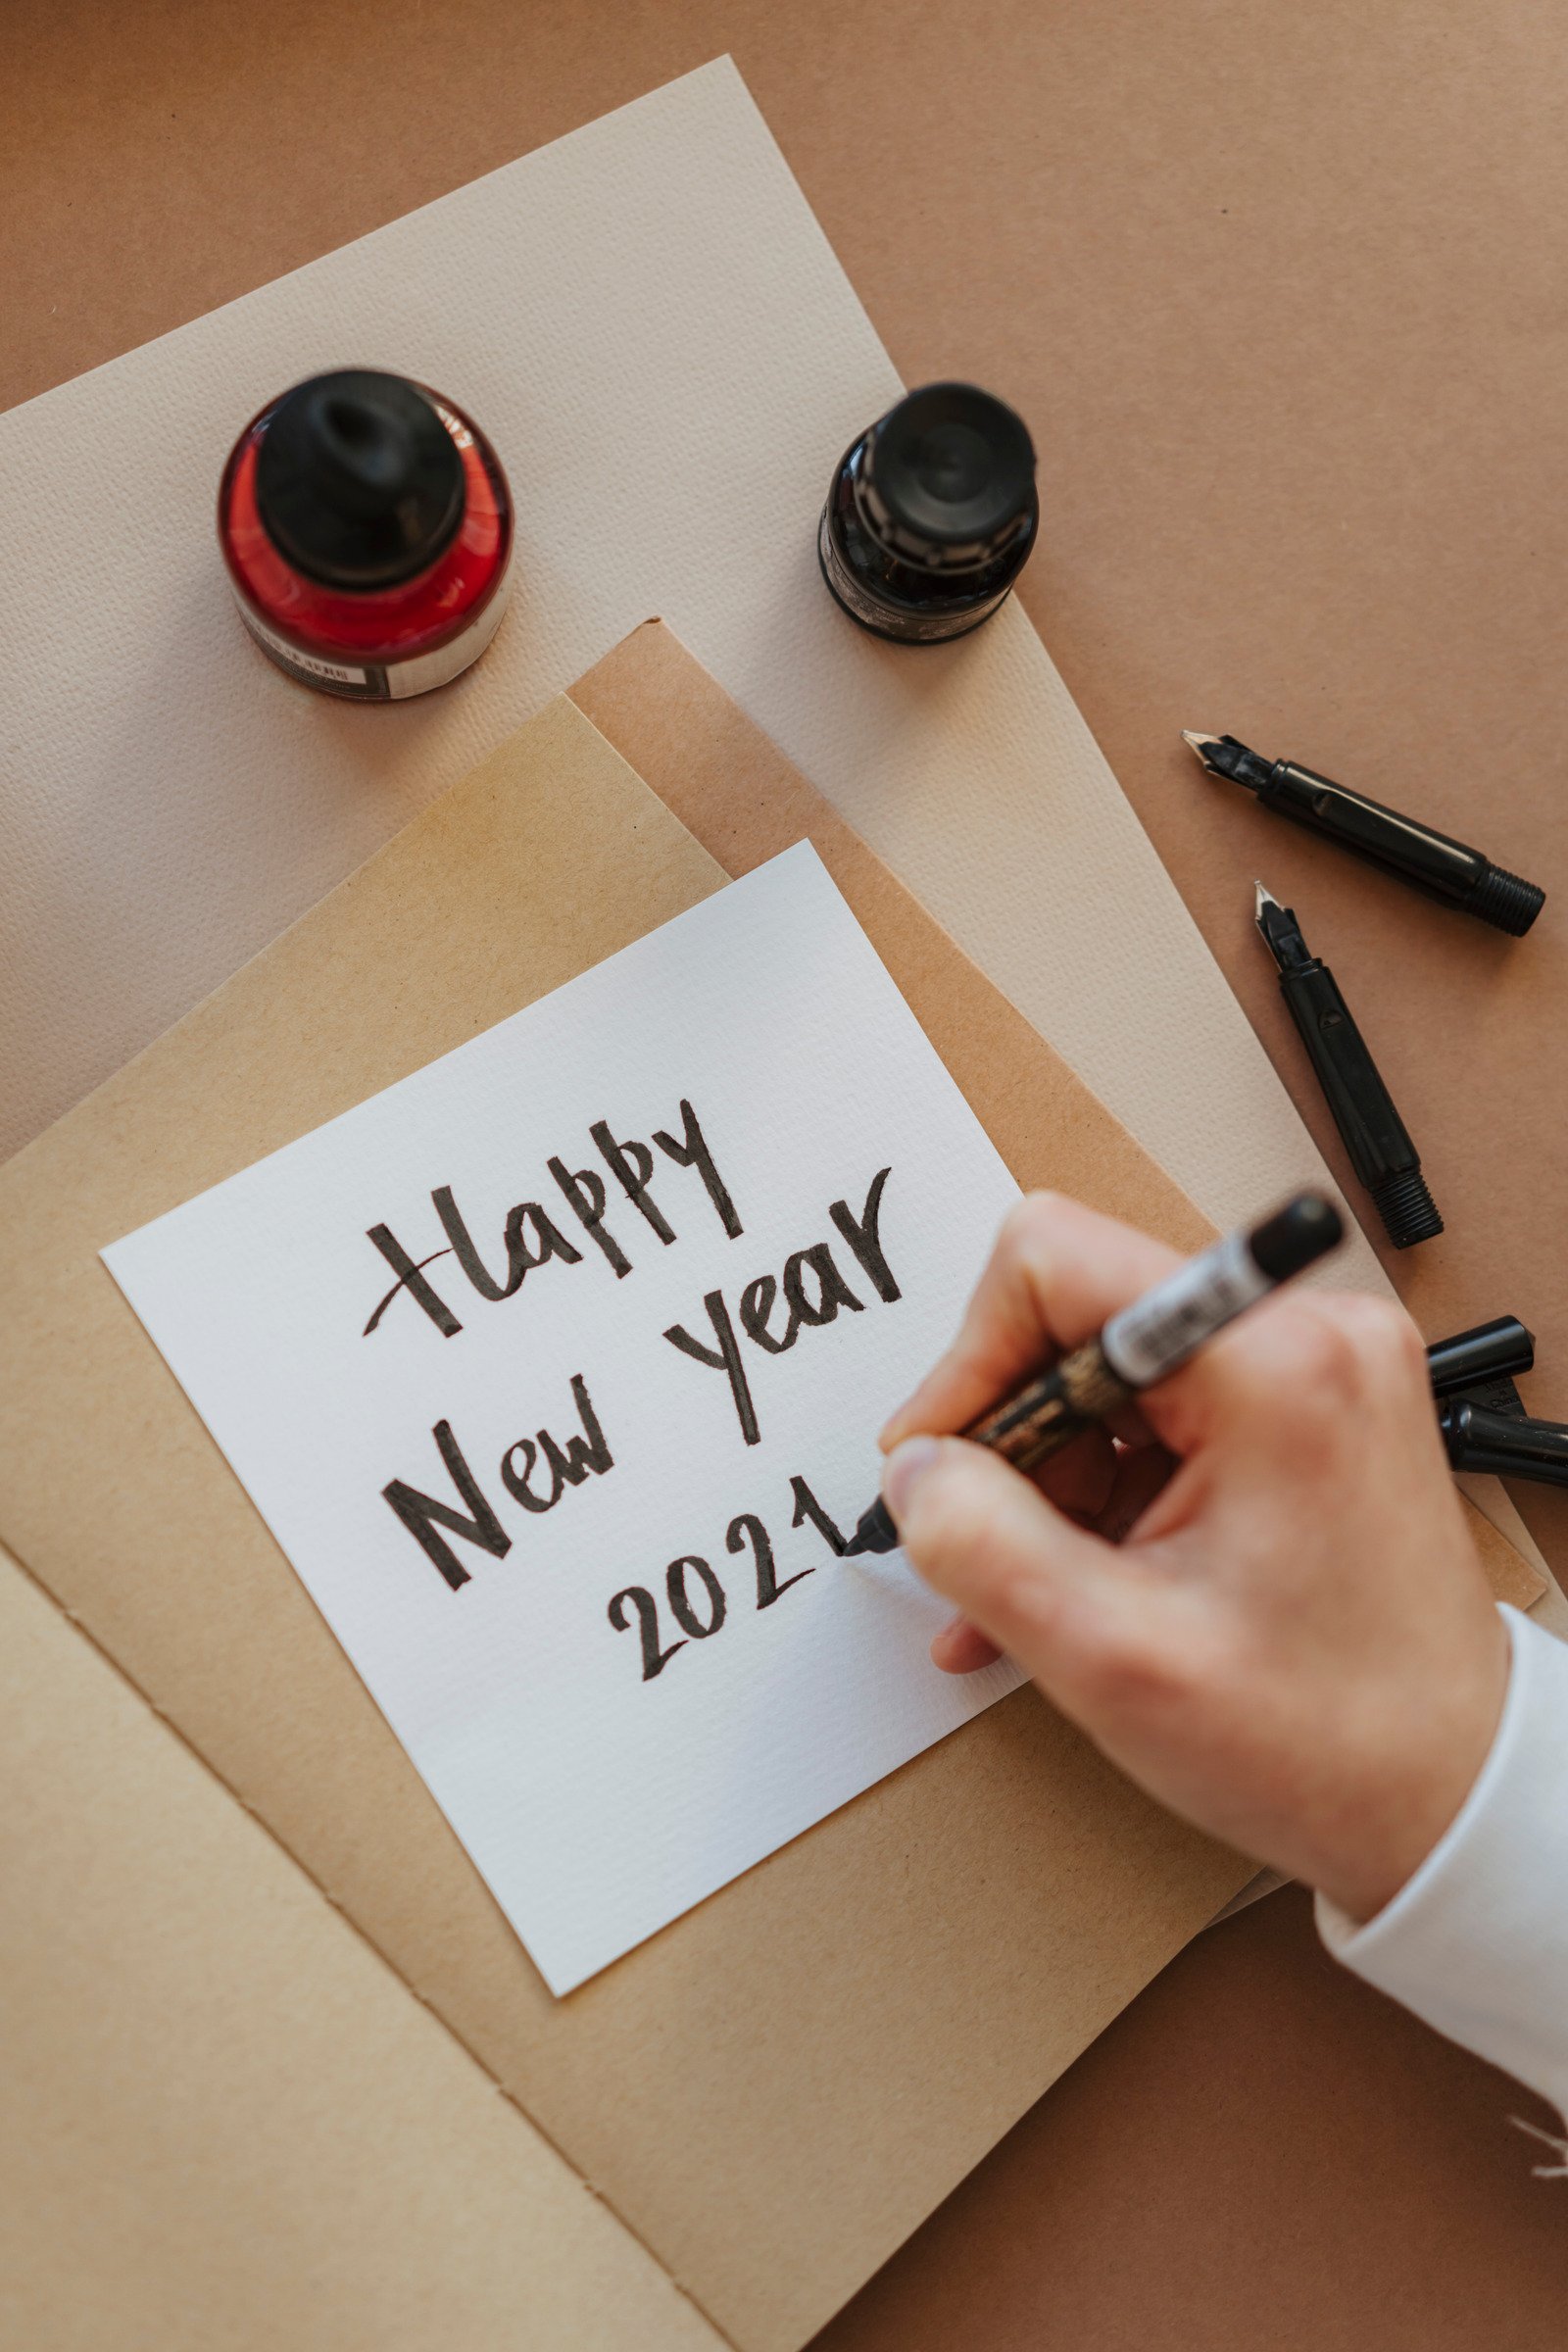 Happy
New year
2021